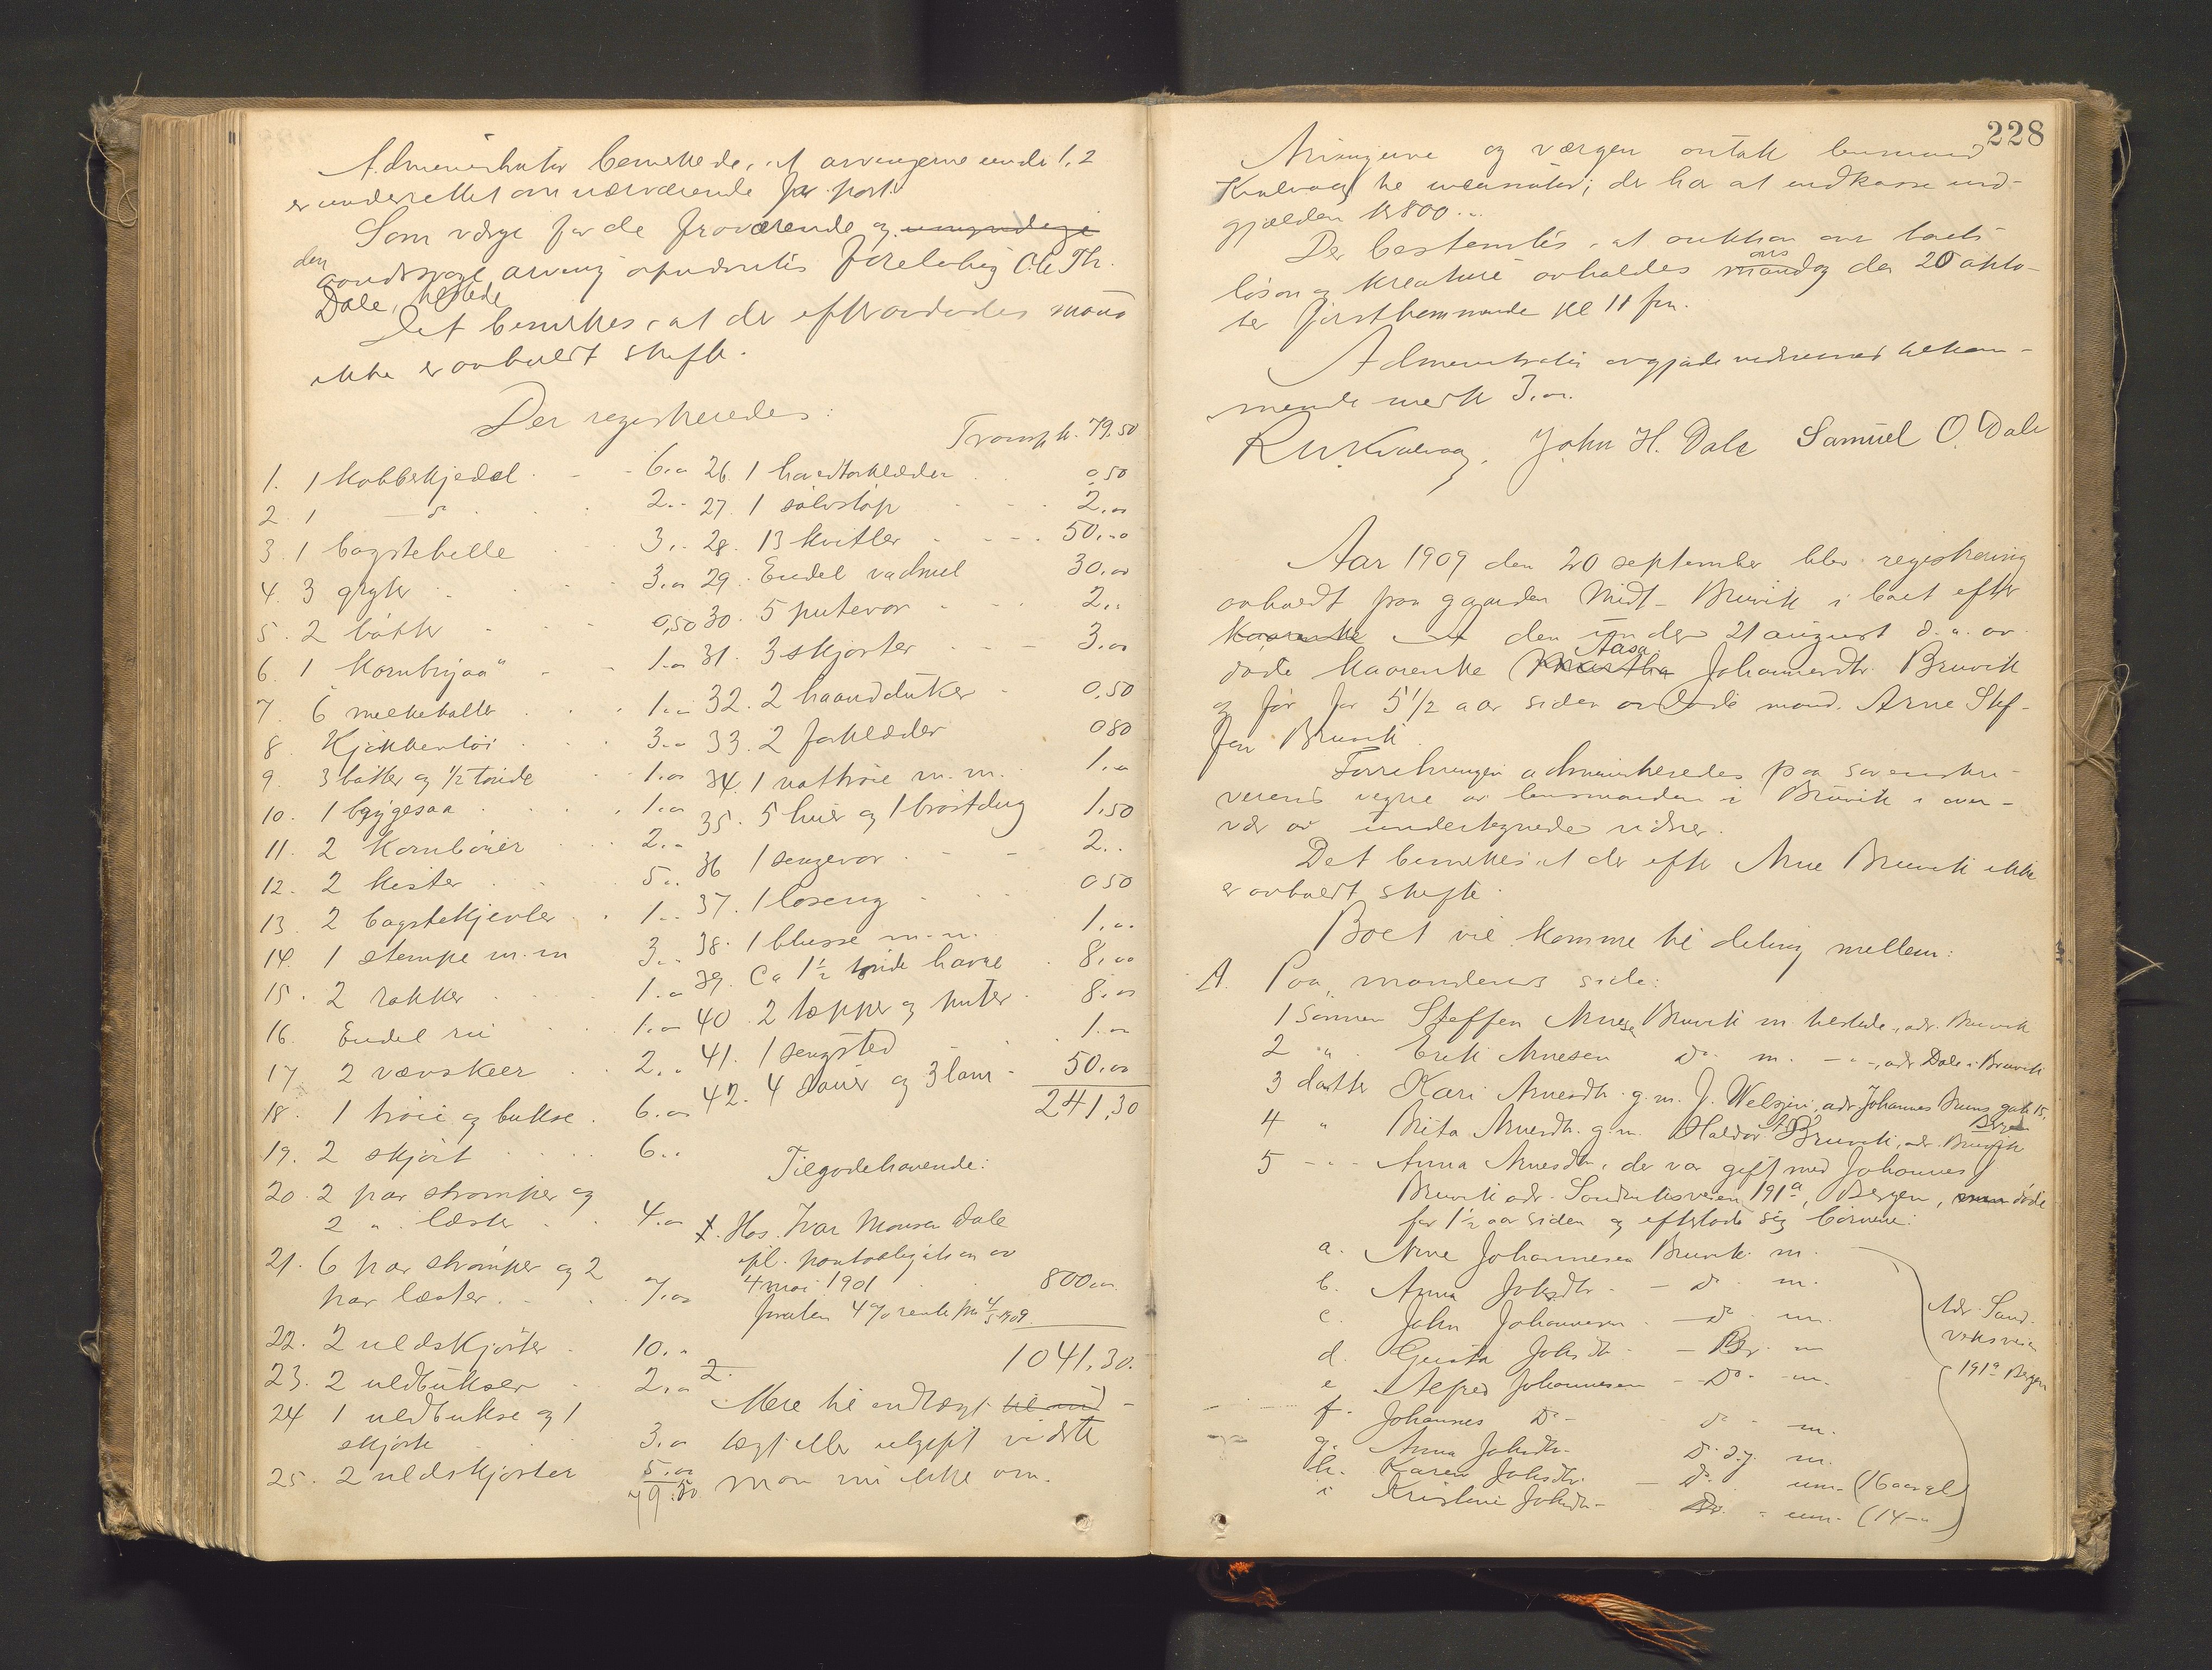 Administrator bemerkede, at arvingerne under 1, 2
er underrettet om nærværende forr. pr. post.
Som værge for de fraværende og umyndige
den
aandssvage arving opnævntes foreløbig Ole Th.
Dale, tilstede
Det bemerkes, at der efter avdødes mand
ikke er avholdt skifte.
Der registreredes:
1. 1 kobbekjedel 6.00
2. 1 —do— 2.-
3. 1 bagstehelle 3.-
4. 3 gryter 3.00
5. 2 bøtter 0,50
6. 1 Kornbryaa 1.00
7. 6 melkekoller 1.00
8. Kjøkkentøi 3.00
9. 3 bøtter og 1/2 tønde 1.00
10. 1 bryggesaa 1.00
11. 2 Kornbøiner 2.00
12. 2 kister 5.00
13. 2 bagstekjevler 1.-
14. 1 stampe m.m 3.-
15. 2 rokker 1.00
16. Endel 1.00
17. 2 vævskeer 2.00
18. 1 trøie og bukse 6.00
19. 2 skjørt 6.-
20. 2 par strømper og
2 " læster 4.00
21. 6 par strømper og 2
par læster 7.00
22. 2 uldskjorter 10.-
23. 2 uldbukser 2.00
24 1 uldbukse og 1
skjorte 3.00
25. 2 uldskjorter 5.00
79.50
Transp. kr. 79.50
26. 1 hovedtørklæder 0,50
27. 1 sølvstøp 2.00
28. 13 kvitler 50.00
29. Endel vadmel 30.00
30. 5 putevar 2.-
31. 3 skjorter 3.00
32. 2 haandduker 0,50
33. 2 forklæder 0 80
34. 1 nattrøie m.m. 1.00
35. 5 huer og 1 brøstdug 1,50
36 1 sengevar 2.-
37. 1 løseng 0 50
38. 1 blusse m.m. 1.00
39. Ca 1 1/2 tønde havre 8.00
40. 2 tepper og puter 8.00
41. 1 sengsted 1.00
42. 4 sauer og 3 lam 50.00
241,30
Tilgodehavende:
1. Hos Ivar Monsen Dale
ifl. pantobligation av
4 mai 1901 800.00
foruten 4% rente fra 4/5 1909
1041,30.
2.
Mere til indtægt til ind-
tægt eller utgift vidste
man nu ikke om.
228
Arvingerne og værgen antok lensmand
Kvalvaag til inkassator; der har at indkasse ind-
gjælden kr 800.-
Der bestemtes, at auktion over boets
ons
løsøre og kreature avholdes mandag den 20 okto-
ber førstkommende kl 11 fm.
Administrator avgjorde vidnernes tilkom-
mende med kr 3.00.
R. Kvalvaag. John H. Dale Samuel O. Dale
Aar 1909 den 20 september blev registrering
avholdt paa gaarden Midt-Bruvik i boet efter
den under 21 august d. a. av-
Aasa
døde kaarenke Martha Johannesdtr. Bruvik
og før for 5 1/2 aar siden avdøde mand. Arne Stef-
fen Bruvik.
Forretningen administreredes paa sorenskri-
verens vegne av lensmanden i Bruvik i over-
vær av undertegnede vidner.
Det bemerkes at der efter Arne Bruvik ikke
er avholdt skifte.
Boet vil komme til deling mellem:
A. Paa mandens side:
1 Sønnen Steffen Arnesen Bruvik m. tilstede, adr. Bruvik
2 " Erik Arnesen do m. —"—, adr Dale i Bruvik
3 datter Kari Arnesdtr. g.m. J. Welgin, adr Johannes Bruns gate 15,
Bergen
4 " Brita Arnesdtr. g.m. Haldor Bruvik, adr. Bruvik
5 - " - Anna Arnesdtr. der var gift med Johannes
Bruvik adr. Sandviksveien 191a, Bergen, døde
for 1 1/2 aar siden og efterlot sig børnene:
a. Arne Johannesen Bruvik m.
b. Anna Johsdtr. - do m.
c. John Johannesen - do m.
d. Gusta Johsdtr. - Br. m
e Alfred Johannesen - do m.
f. Johannes Do - do m.
g. Anna Johsdtr. Do d.y. m.
h. Karen Johsdtr. - Do um. (16 aar gl)
i Kristine Johsdtr. - Do um. (14 —"—)
Adr. Sand-
viksveien
191a Bergen